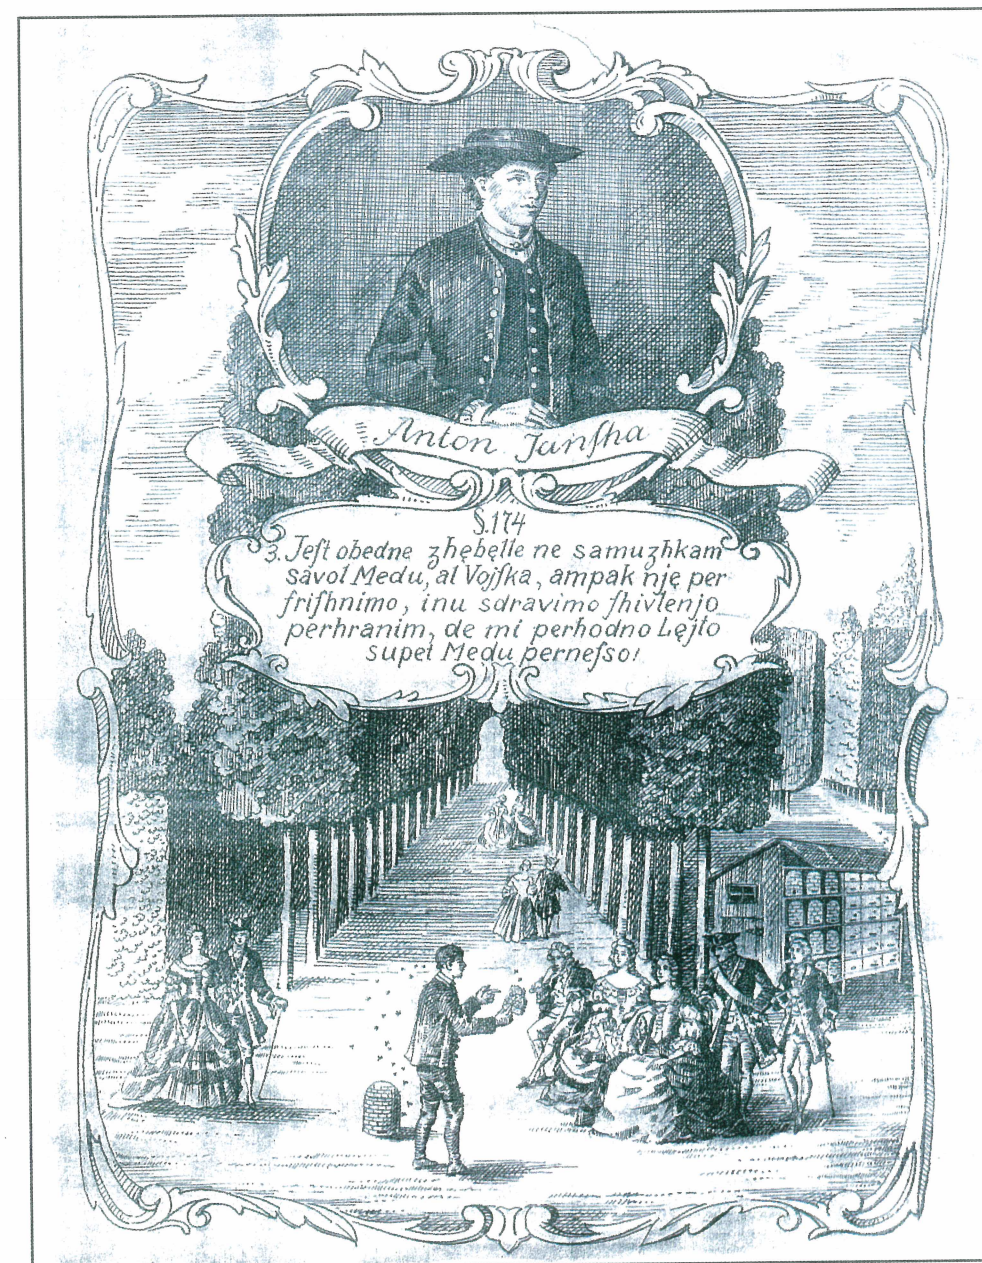 Anton Janſha
§.174
3. Jeſt obedne zhębęlle ne samuzhkam
savol Medu, al Vojſka, ampak nję per
friſhnimo, inu sdravimo ſhivlenjo
perhranim, de mi perhodno Lęjto
supet Medu perneſso!